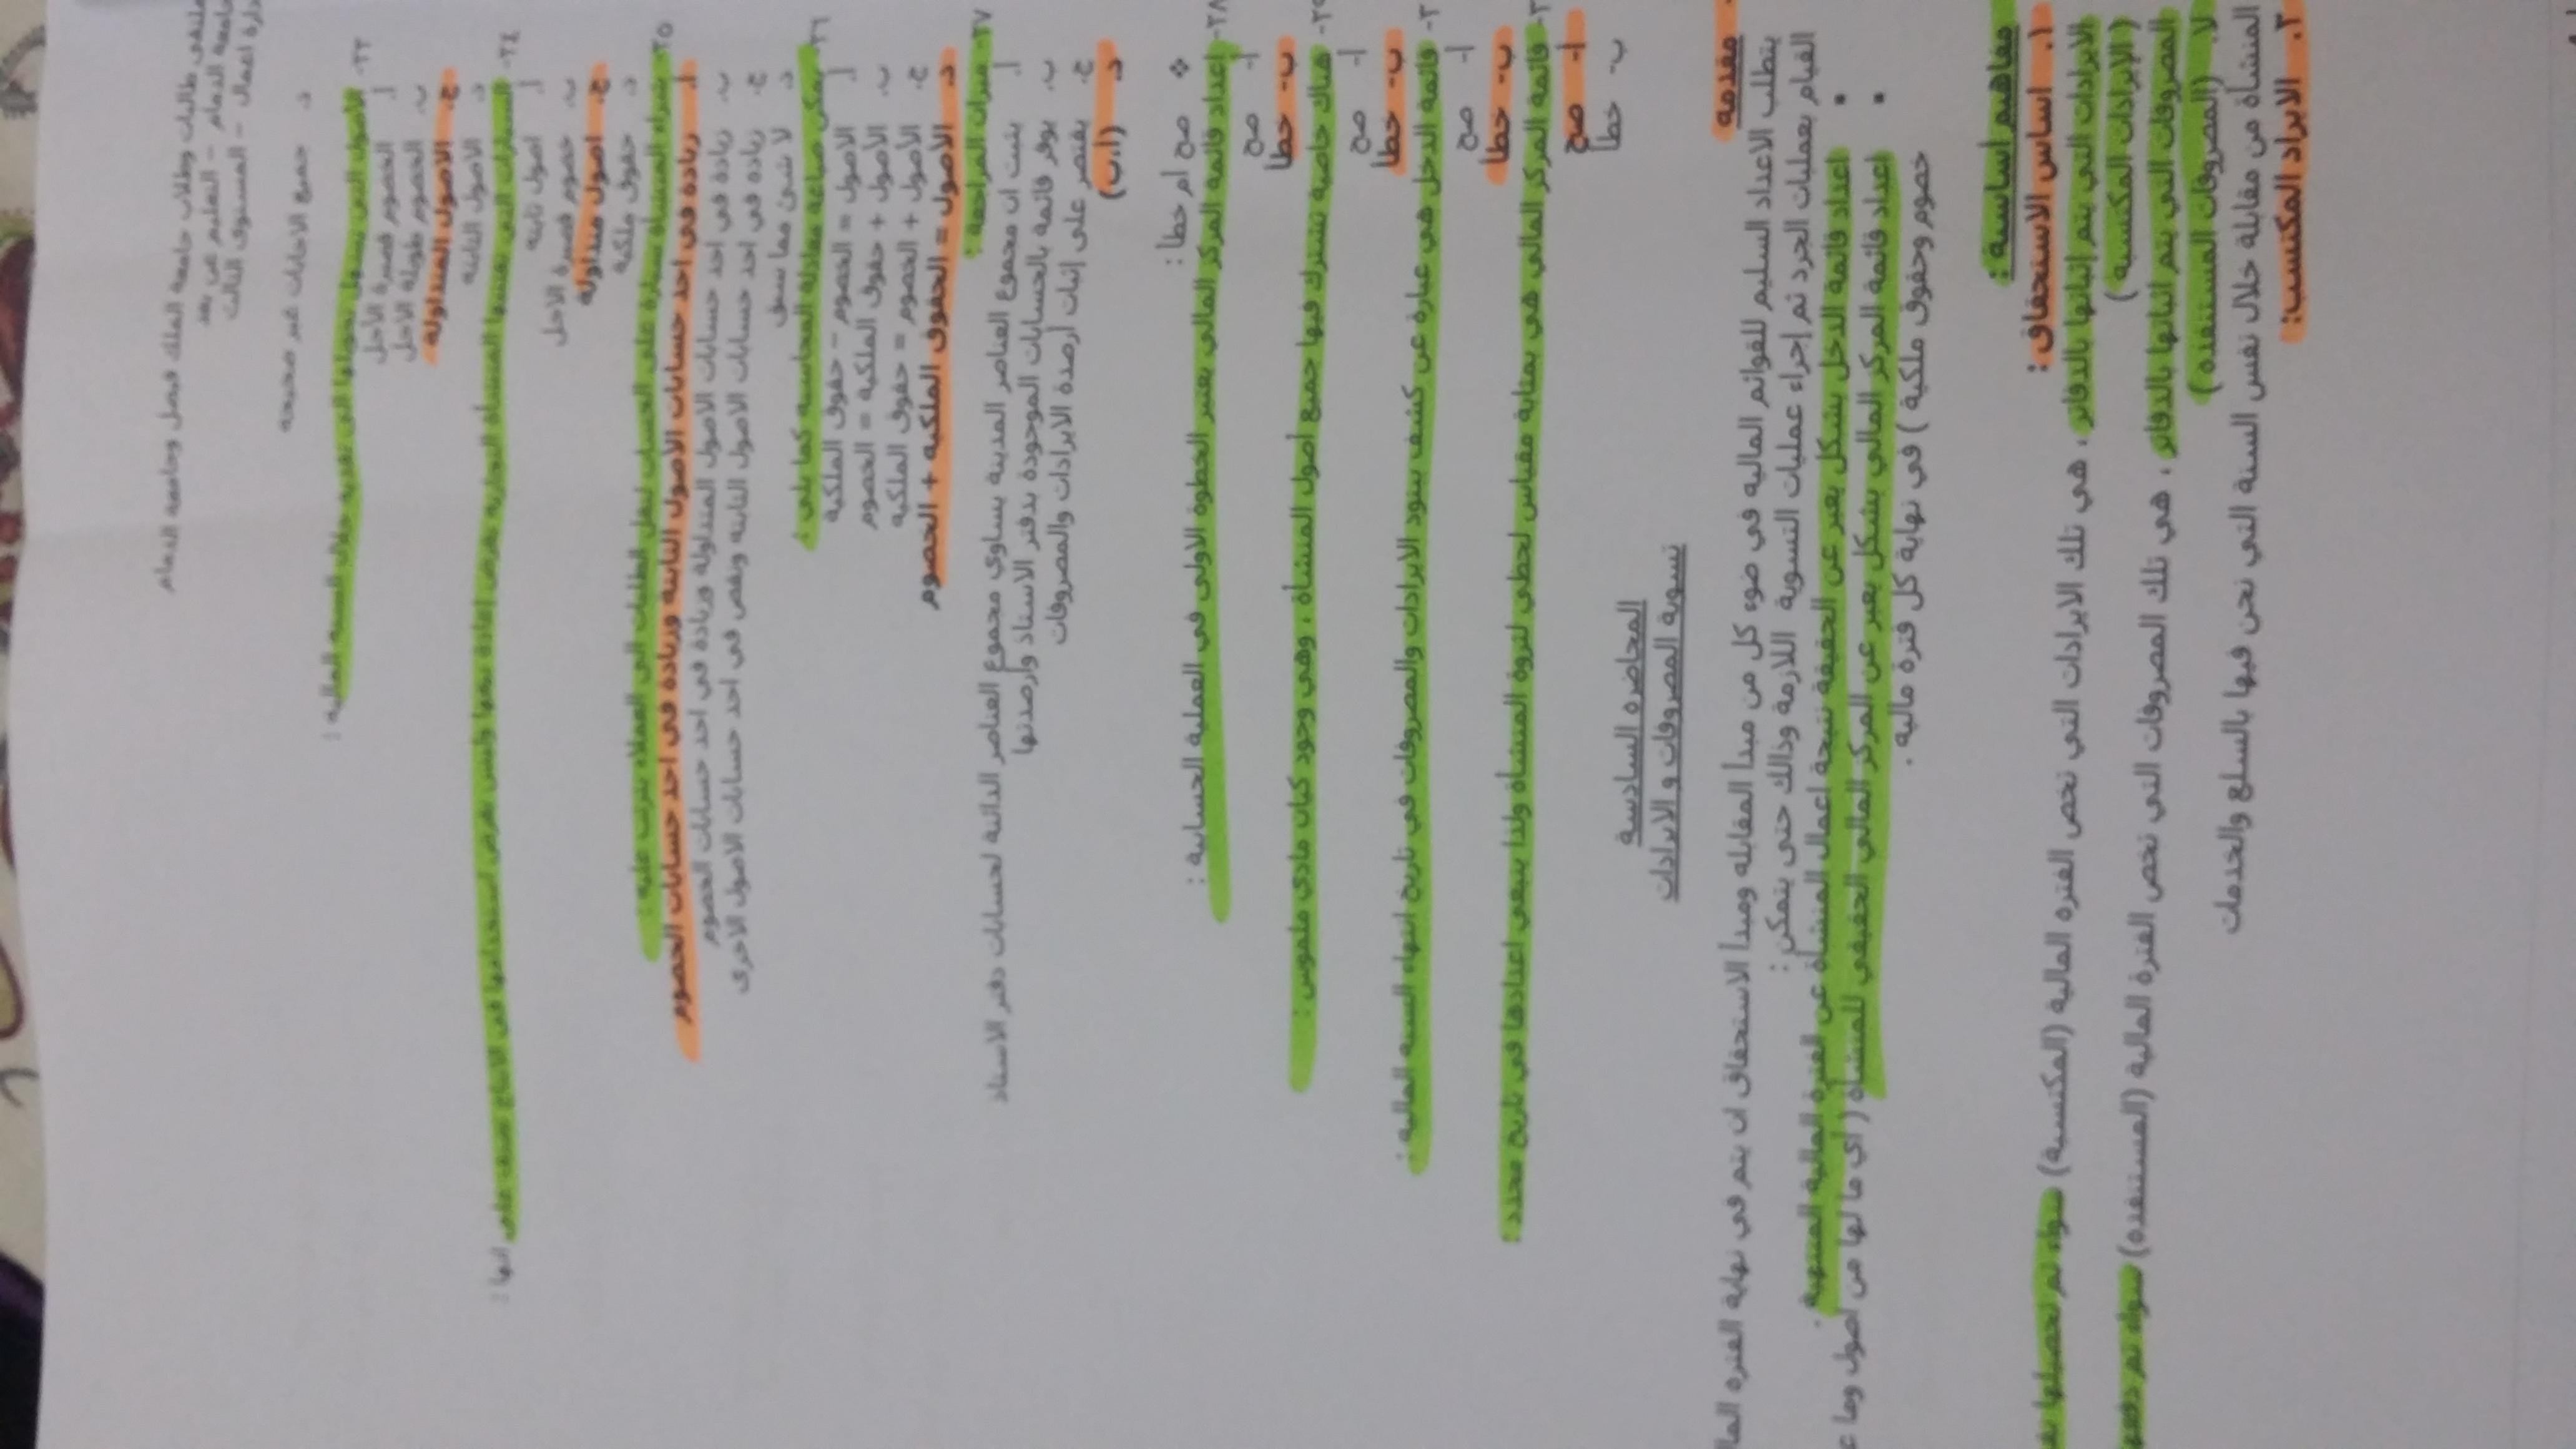 ملتقى طالبات وطلاب جامعة الملك فيصل وجامعة الدمام
جامعة الدمام – التعليم عن بعد
إدارة اعمال – المستوى الثالث
د. جميع الاجابات غير صحيحه
٢٣- الأصول التي يسهل تحويلها الى نقدية خلال السنه الماليه :
أ. الخصوم قصيرة الأجل
ب. الخصوم طويلة الأجل
ج. الاصول المتداولة
د. الاصول الثابته
٢٤- السيارات التي تقتنيها المنشاة التجاريه بغرض إعادة بيعها وليس بغرض استخدامها في الانتاج تصنف على انها :
أ. اصول ثابته
ب. خصوم قصيرة الاجل
ج. اصول متداولة
د. حقوق ملكية
٢٥- شراء المنشاة سيارة على الحساب لنقل الطلبات الى العملاء يترتب عليه :
أ. زيادة في احد حسابات الاصول الثابته وزيادة في احد حسابات الخصوم
ب. زيادة في احد حسابات الاصول المتداولة وزيادة في احد حسابات الخصوم
ج. زيادة في احد حسابات الاصول الثابته ونقص في احد حسابات الاصول الاخرى
د. لا شئ مما سبق
٢٦- يمكن صياغة معادلة المحاسبه كما يلي :
أ. الاصول = الخصوم – حقوق الملكية
ب. الاصول + حقوق الملكية = الخصوم
ج. الاصول + الخصوم = حقوق الملكية
د. الاصول = الحقوق الملكيه + الخصوم
٢٧- ميزان المراجعة :
أ. يثبت ان مجموع العناصر المدينة يساوي مجموع العناصر الدائنة لحسابات دفتر الاستاذ
ب. يوفر قائمة بالحسابات الموجودة بدفتر الاستاذ وأرصدتها
ج. يقتصر على إثبات أرصدة الايرادات والمصروفات
د. (ا،ب)
❖ صح ام خطا :
٢٨- إعداد قائمة المركز المالي يعتبر الخطوة الاولى في العملية الحسابية :
أ- صح
ب- خطا
٢٩- هناك خاصية تشترك فيها جميع اصول المنشاة ، وهي وجود كيان مادي ملموس :
أ- صح
ب- خطا
قائمة الدخل هي عبارة عن كشف ببنود الايرادات والمصروفات في تاريخ انتهاء السنه الماليه :
أ- صح
ب- خطا
قائمة المركز المالي هي بمثابة مقياس لحظي لثروة المنشاة ولذا ينبغي اعدادها في تاريخ محدد :
أ- صح
ب- خطأ
المحاضره السادسة
تسوية المصروفات و الايرادات
مقدمة
يتطلب الاعداد السليم للقوائم الماليه في ضوء كل من مبدا المقابله ومبدا الاستحقاق ان يتم في نهاية الفتره
القيام بعمليات الجرد ثم إجراء عمليات التسوية اللازمة وذالك حتى يتمكن :
▪ اعداد قائمة الدخل بشكل يعبر عن الحقيقة نتيجة اعمال المنشاة عن الفترة المالية المنتهية .
▪ إعداد قائمة المركز المالي بشكل يعبر عن المركز المالي الحقيقي للمنشاة ( اي ما لها من اصول وما
خصوم وحقوق ملكية ) في نهاية كل فترة مالية .
مفاهيم اساسية :
١. اساس الاستحقاق :
الايرادات التي يتم إثباتها بالدفاتر ، هي تلك الايرادات التي تخص الفتره المالية (المكتسبة) سواء تم تحصيلها
(الإيرادات المكتسبة)
المصروفات التي يتم اثباتها بالدفاتر ، هي تلك المصروفات التي تخص الفترة المالية (المستنفده) سواء تم دفعها
لا. (المصروفات المستنفده)
٢. الايراد المكتسب:
المنشأة من مقابلة خلال نفس السنة التي نحن فيها بالسلع والخدمات